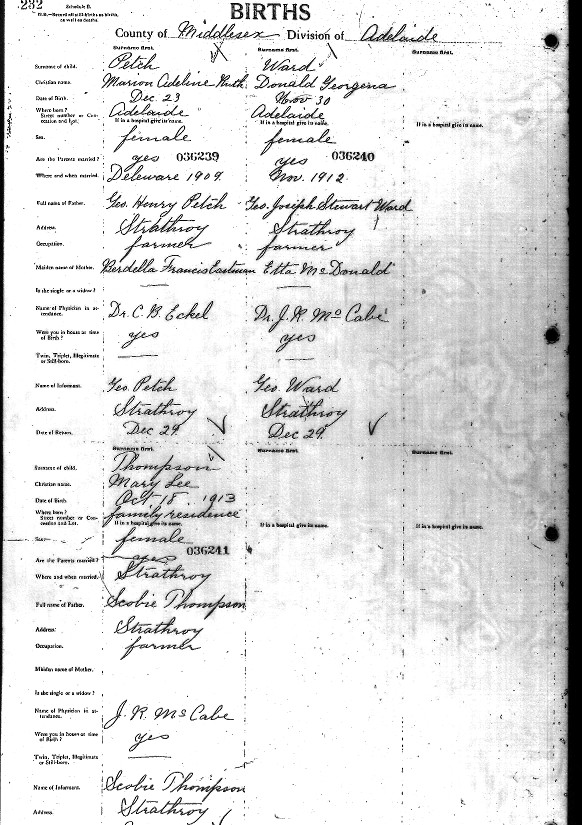 232
Schedule B.
N.B.—Record of still-births as births, as well as deaths.
BIRTHS
County of Middlesex Division of Adelaide
Surname first. Surname first. Surname first.
Surname of child. Petch Ward
Christian name. Marion Adeline Ruth Donald Georgena
Date of Birth. Dec. 23 Nov 30
Where born? Adelaide Adelaide
Street number or Concession and Lot. If in a hospital give its name. If in a hospital give its name. If in a hospital give its name.
Sex. female female
Are the Parents married? yes 036239 yes 036240
Where and when married. Deleware 1909. Nov. 1912.
Full name of Father. Geo. Henry Petch Geo. Joseph Stewart Ward
Address. Strathroy Strathroy
Occupation. farmer farmer
Maiden name of Mother. Berdella Francis Eastman Etta McDonald
Is she single or a widow?
Name of Physician in attendance. Dr. C. B. Eckel Dr. J. R. McCabe
Were you in house at time of Birth? yes yes
Twin, Triplet, Illegitimate or Still-born.
Name of Informant. Geo. Petch Geo. Ward
Address. Strathroy Strathroy
Date of Return. Dec 29 Dec 29
Surname first. Surname first. Surname first.
Surname of child. Thompson
Christian name. Mary Lee
Date of Birth Oct 18. 1913
Where born? family residence
Street number or Concession and Lot. If in a hospital give its name. If in a hospital give its name. If in a hospital give its name.
Sex. female
036241
Are the Parents married? yes
Where and when married. Strathroy
Full name of Father. Scobie Thompson
Address. Strathroy
Occupation. farmer
Maiden name of Mother.
Is she single or a widow?
Name of Physician in attendance. J. R. McCabe
Were you in house at time of Birth? yes
Twin, Triplet, Illegitimate or Still-born.
Name of Informant. Scobie Thompson
Address. Strathroy